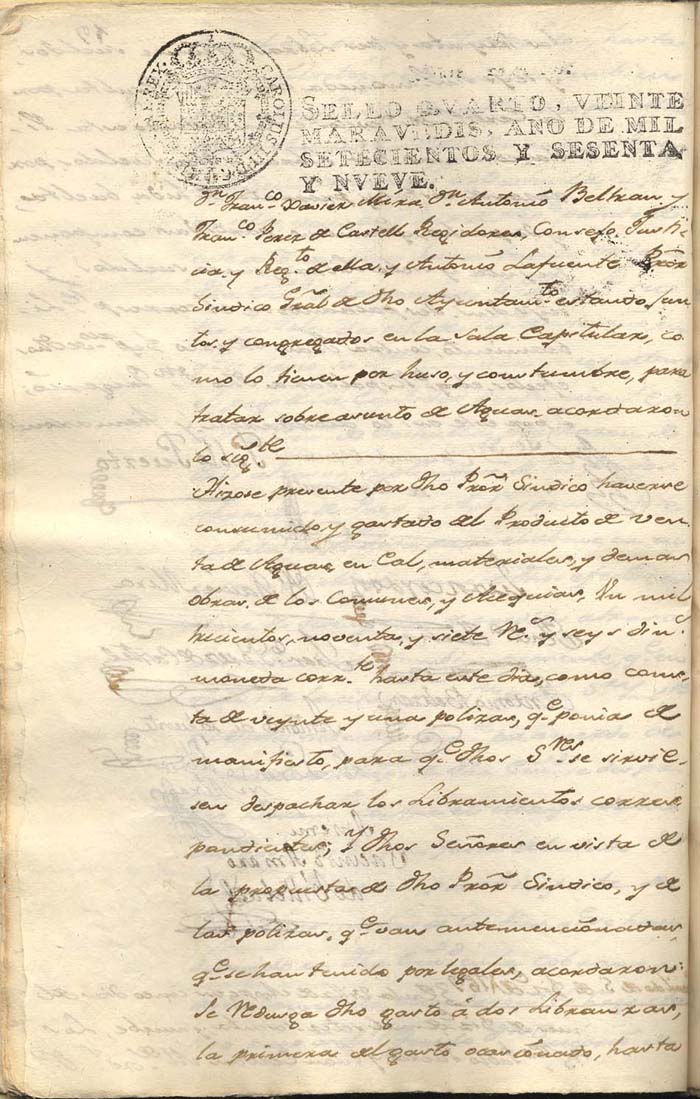 CAROLUS III D G
REX
SELLO QVARTO, VEINTE
MARAVEDIS, AÑO DE MIL
SETECIENTOS Y SESENTA
Y NVEVE.
Dn. Franco. Xavier Mira, Dn. Antonio Beltran, y
Franco. Perez de Castell Regidores, Consejo, Justi
cia, y Regto. de ella, y Antonio Lafuente Pror.
Sindico Gral. de dho Ayuntamto. estando jun
tos, y congregados en la Sala Capitular, co
mo lo tienen por huso, y constumbre, para
tratar sobre asunto de Aguas, acordaron
lo sigte.
Hizose presente por dho Pror. Sindico haverse
consumido, y gastado del Producto de ven
ta de Aguas, en Cal, materiales, y demas
obras, de los Comunes, y Acequias, Un mil
treicientos, noventa, y siete Rs. y seys din.
moneda corrte. hasta este dia, como cons
ta de veynte y una polizas, qe. ponia de
manifiesto, para qe. dhos Sres. se sirvie
sen despachar los Libramientos corres
pondientes; Y dhos Señores en vista de
la propuesta de dho Pror. Sindico, y de
las polizas, qe. van antemencionadas
qe. se han tenido por legales, acordaron:
Se Redusga dho gasto á dos Libranzas,
la primera del gasto ocacionado, hasta